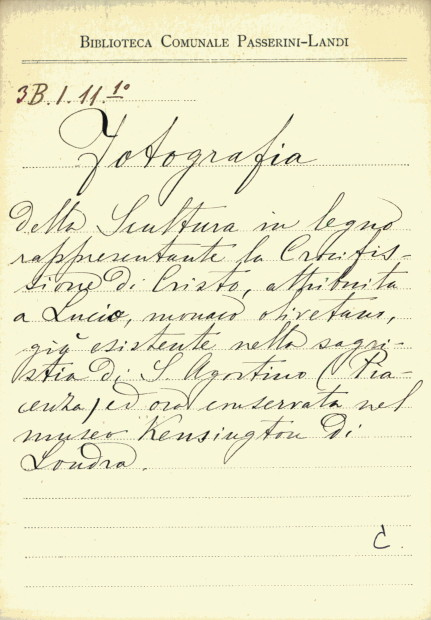 BIBLIOTECA COMUNALE PASSERINI-LANDI
3B.I.11.1º
Fotografia
della Scultura in legno
rappresentante la Crocifis-
sione di Cristo, attribuita
a Lucio, monaco olivetano,
già esistente nella sagri-
stia di S. Agostino (Pia-
cenza) ed ora conservata nel
museo Kensington di
Londra.
C.